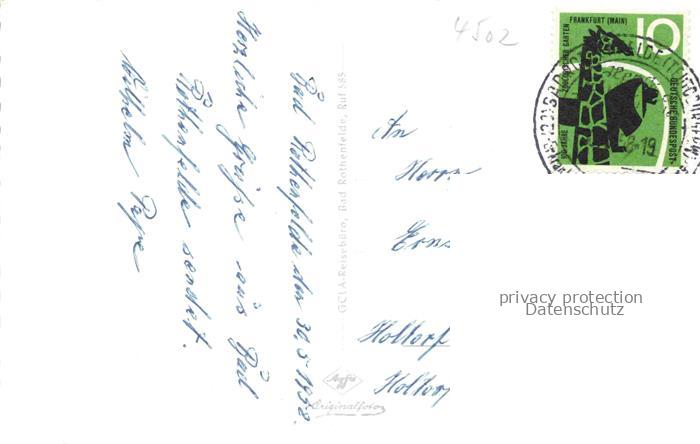 4502
FRANKFURT (MAIN)
10
100 JAHRE ZOOLOGISCHER GARTEN
DEUTSCHE BUNDESPOST
8-19
Bad Rothenfelde den 30.5.1958.
Herzliche Grüße aus Bad
Rothenfelde sendet.
Wilhelm Pape
GCLA-Reisebüro, Bad Rothenfelde, Ruf 585
An
Herrn
Holtorf
privacy protection
Datenschutz
Agfa
Originalfoto